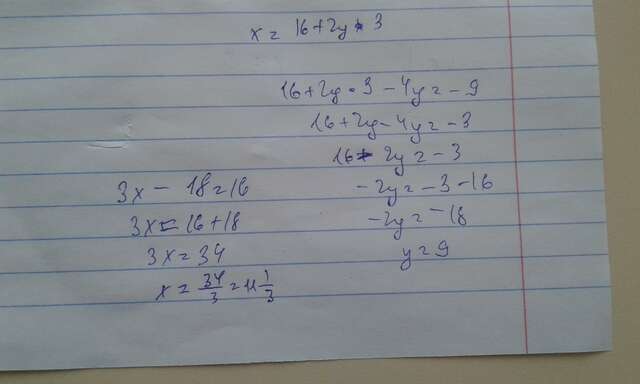 x = 16+2y · 3
16+2y·3 - 4y = -9
16+2y-4y = -3
16-2y = -3
-2y = -3-16
-2y = -18
y = 9
3x - 18 = 16
3x = 16+18
3x = 34
x = 34/3 = 11 1/3